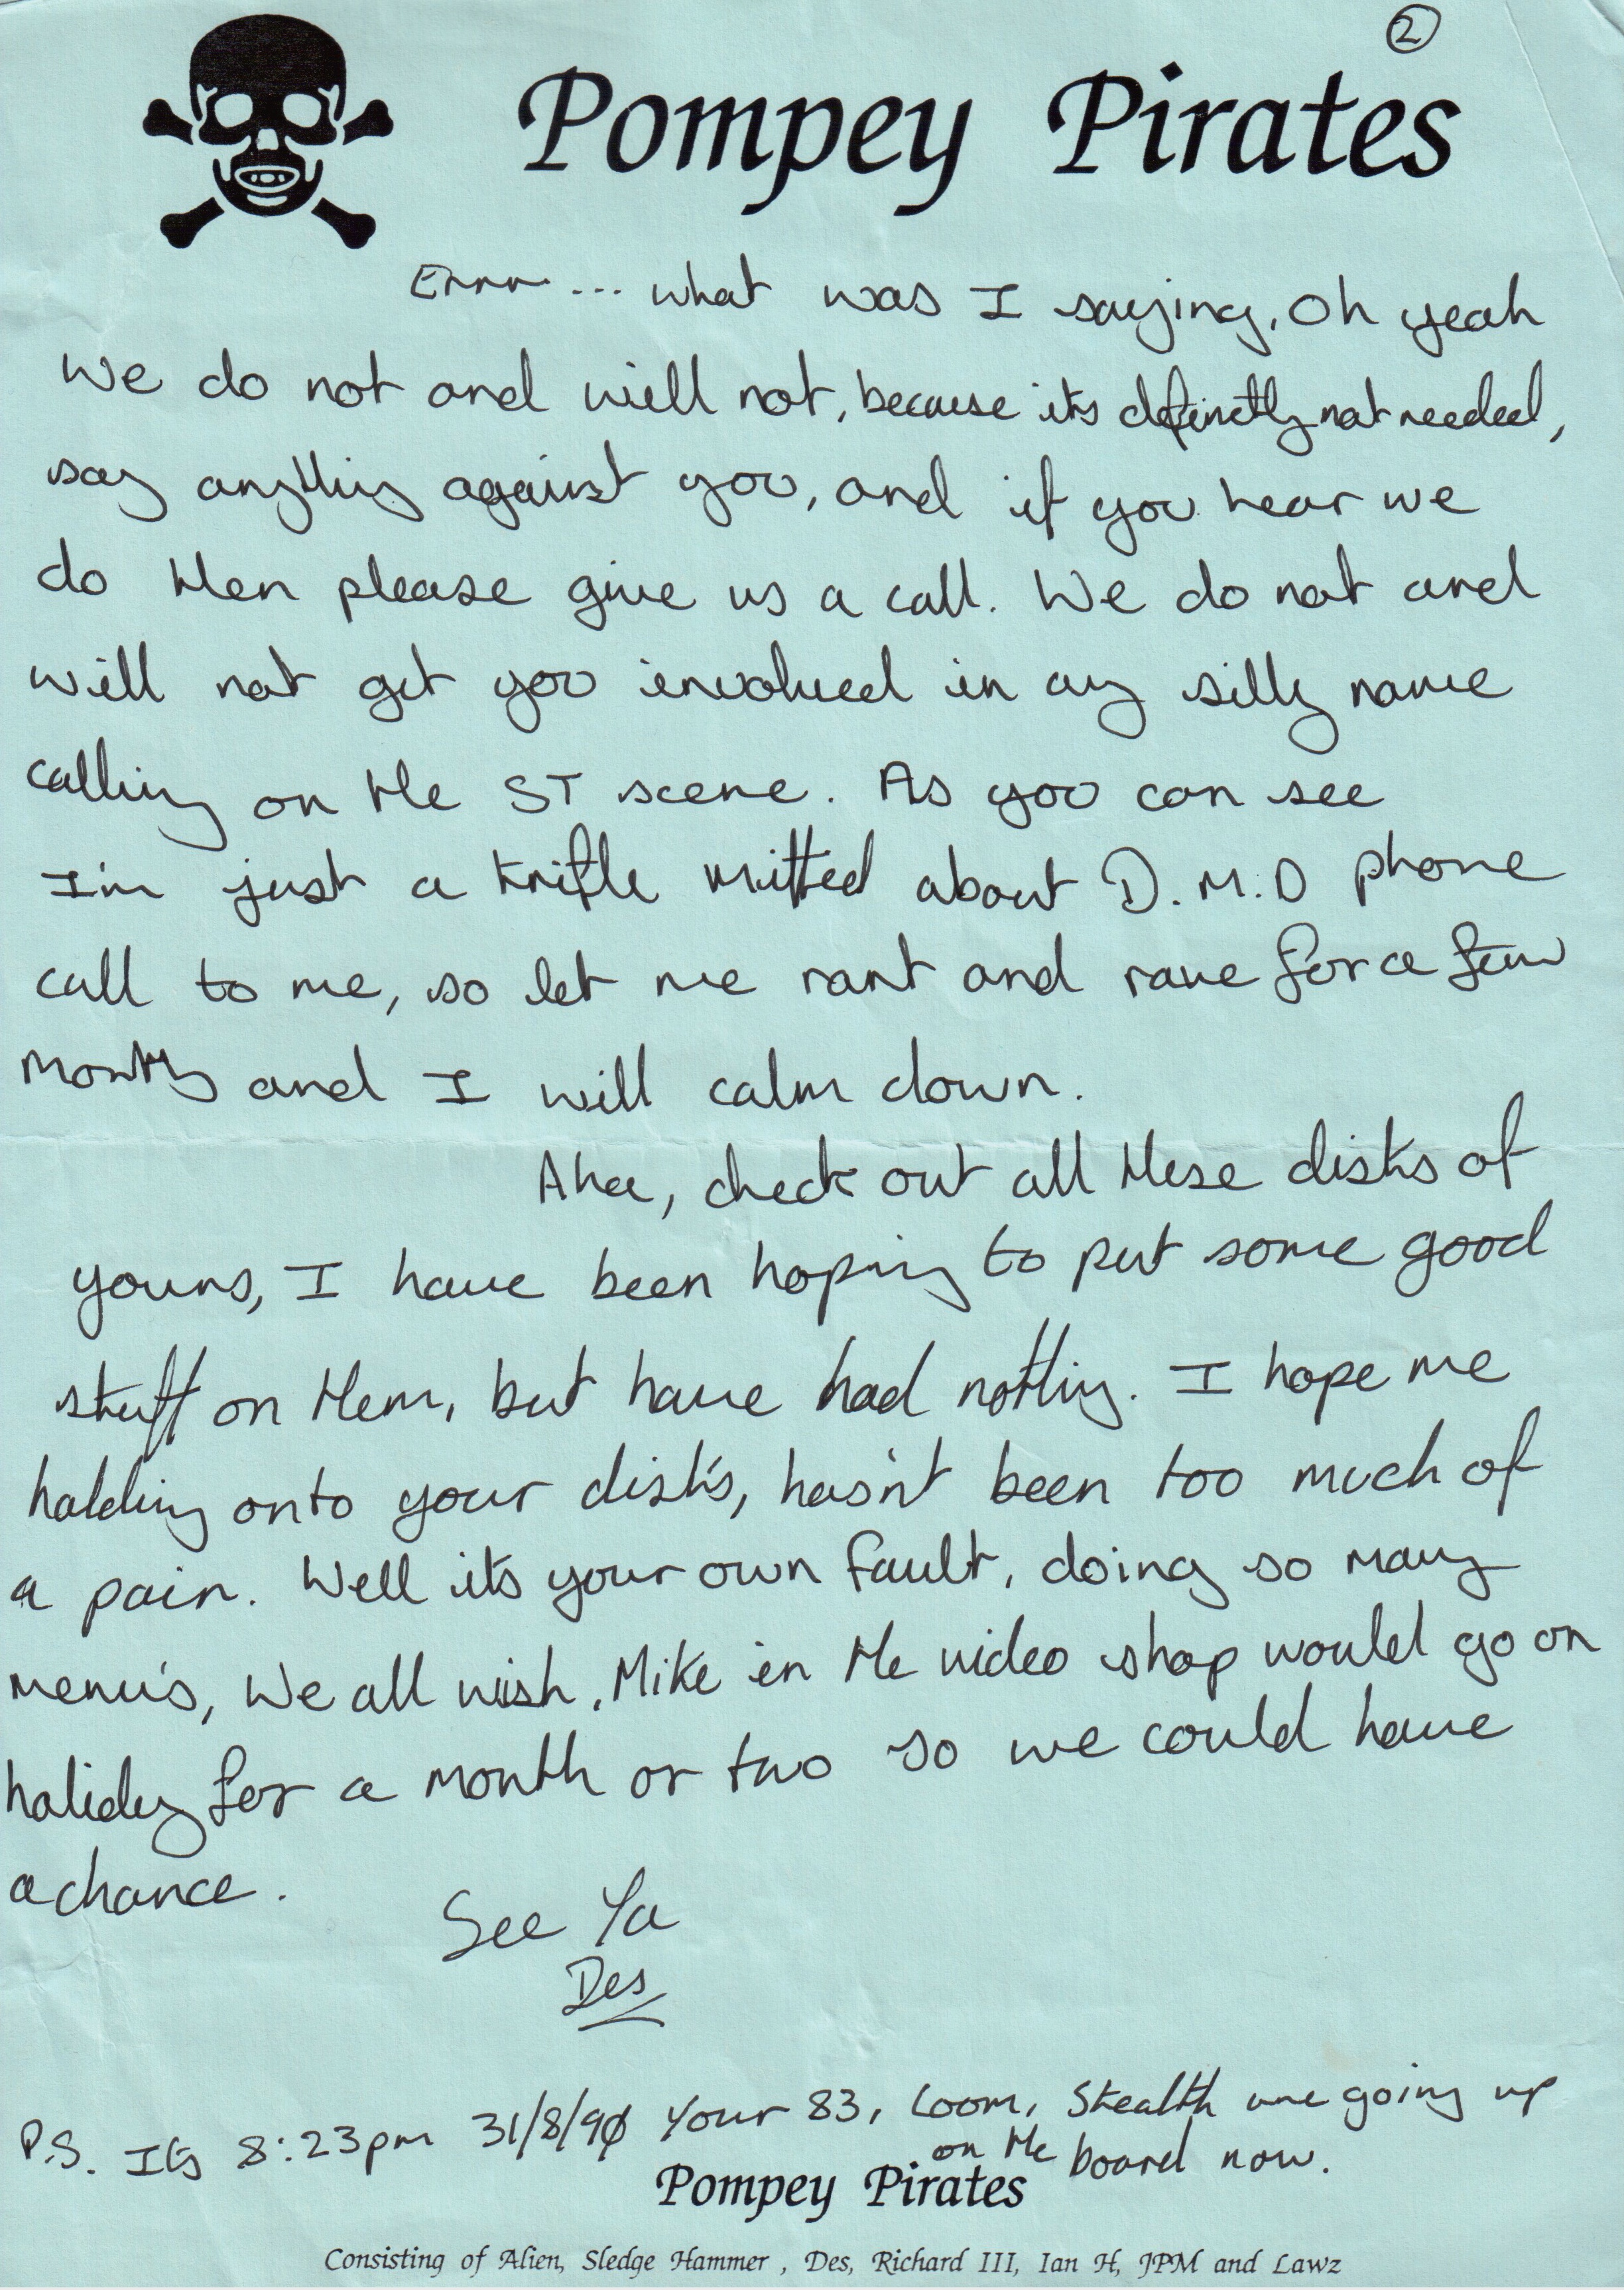 2
Pompey Pirates
Errr... what was I saying, Oh yeah
we do not and will not, because its definetly not needed,
say anything against you, and if you hear we
do then please give us a call. We do not and
will not get you involved in any silly name
calling on the ST scene. As you can see
I'm just a trifle miffed about D.M.D phone
call to me, so let me rant and rave for a few
months and I will calm down.
Ahea, check out all these disks of
yours, I have been hoping to put some good
stuff on them, but have had nothing. I hope me
holding onto your disk's, hasn't been too much of
a pain. Well its your own fault, doing so many
menu's, We all wish, Mike in the video shop would go on
holiday for a month or two so we could have
a chance.
See Ya
Des
P.S. Its 8:23pm 31/8/90 Your 83, Loom, Stealth are going up
on the board now.
Pompey Pirates
Consisting of Alien, Sledge Hammer , Des, Richard III, Ian H, JPM and Lawz